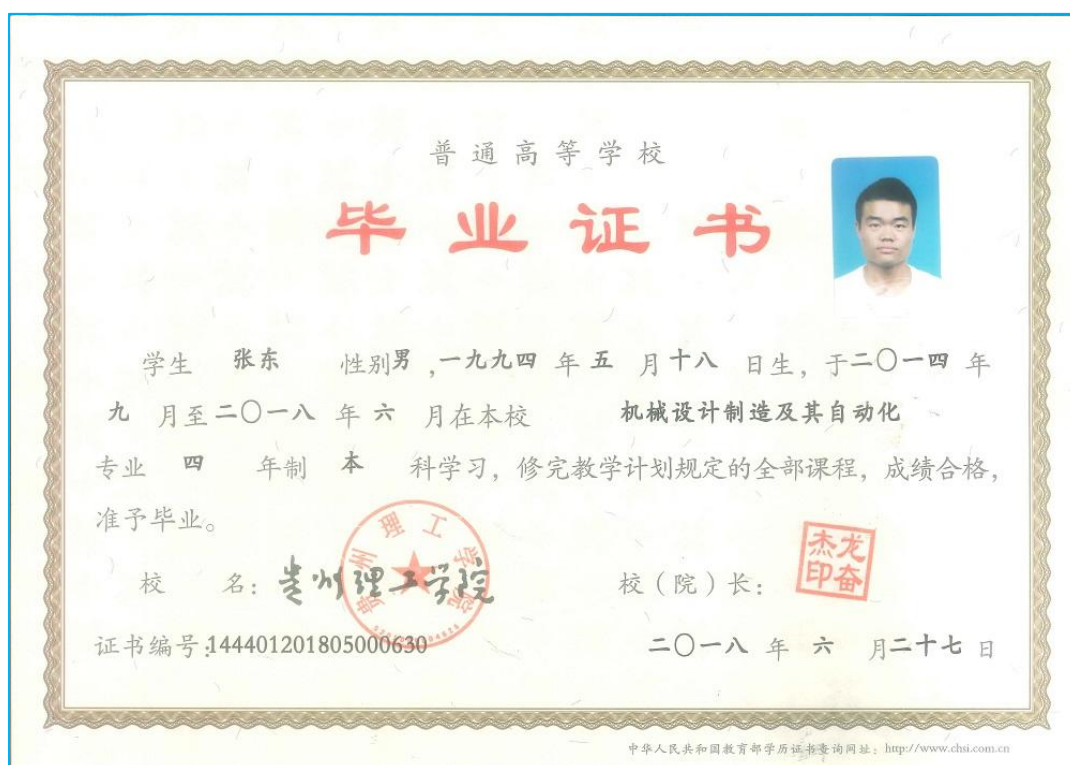 普通高等学校
毕业证书
学生 张东 性别男,一九九四 年 五 月十八 日生, 于二〇一四 年
九 月至二〇一八 年 六 月在本校 机械设计制造及其自动化
专业 四 年制 本 科学习, 修完教学计划规定的全部课程, 成绩合格,
准予毕业。
贵州理工学院
校 名: 贵州理工学院 校（院）长: 龙奋杰印
证书编号:144401201805000630 二〇一八 年 六 月二十七 日
中华人民共和国教育部学历证书查询网址: http://www.chsi.com.cn